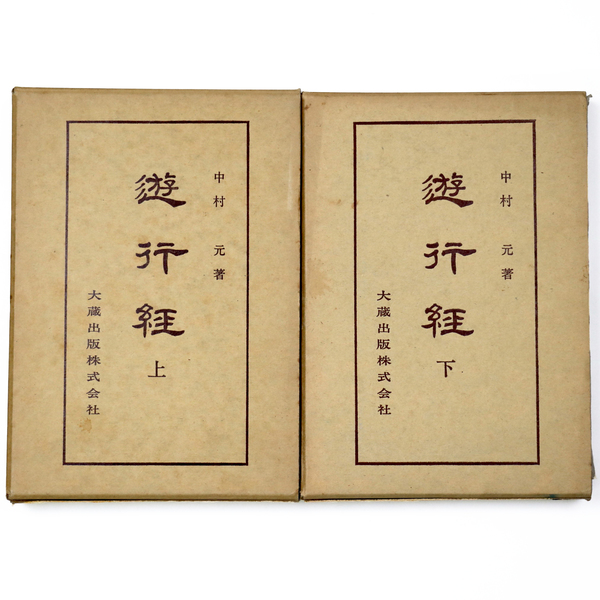 中村 元著
遊行経
上
大蔵出版株式会社
中村 元著
遊行経
下
大蔵出版株式会社